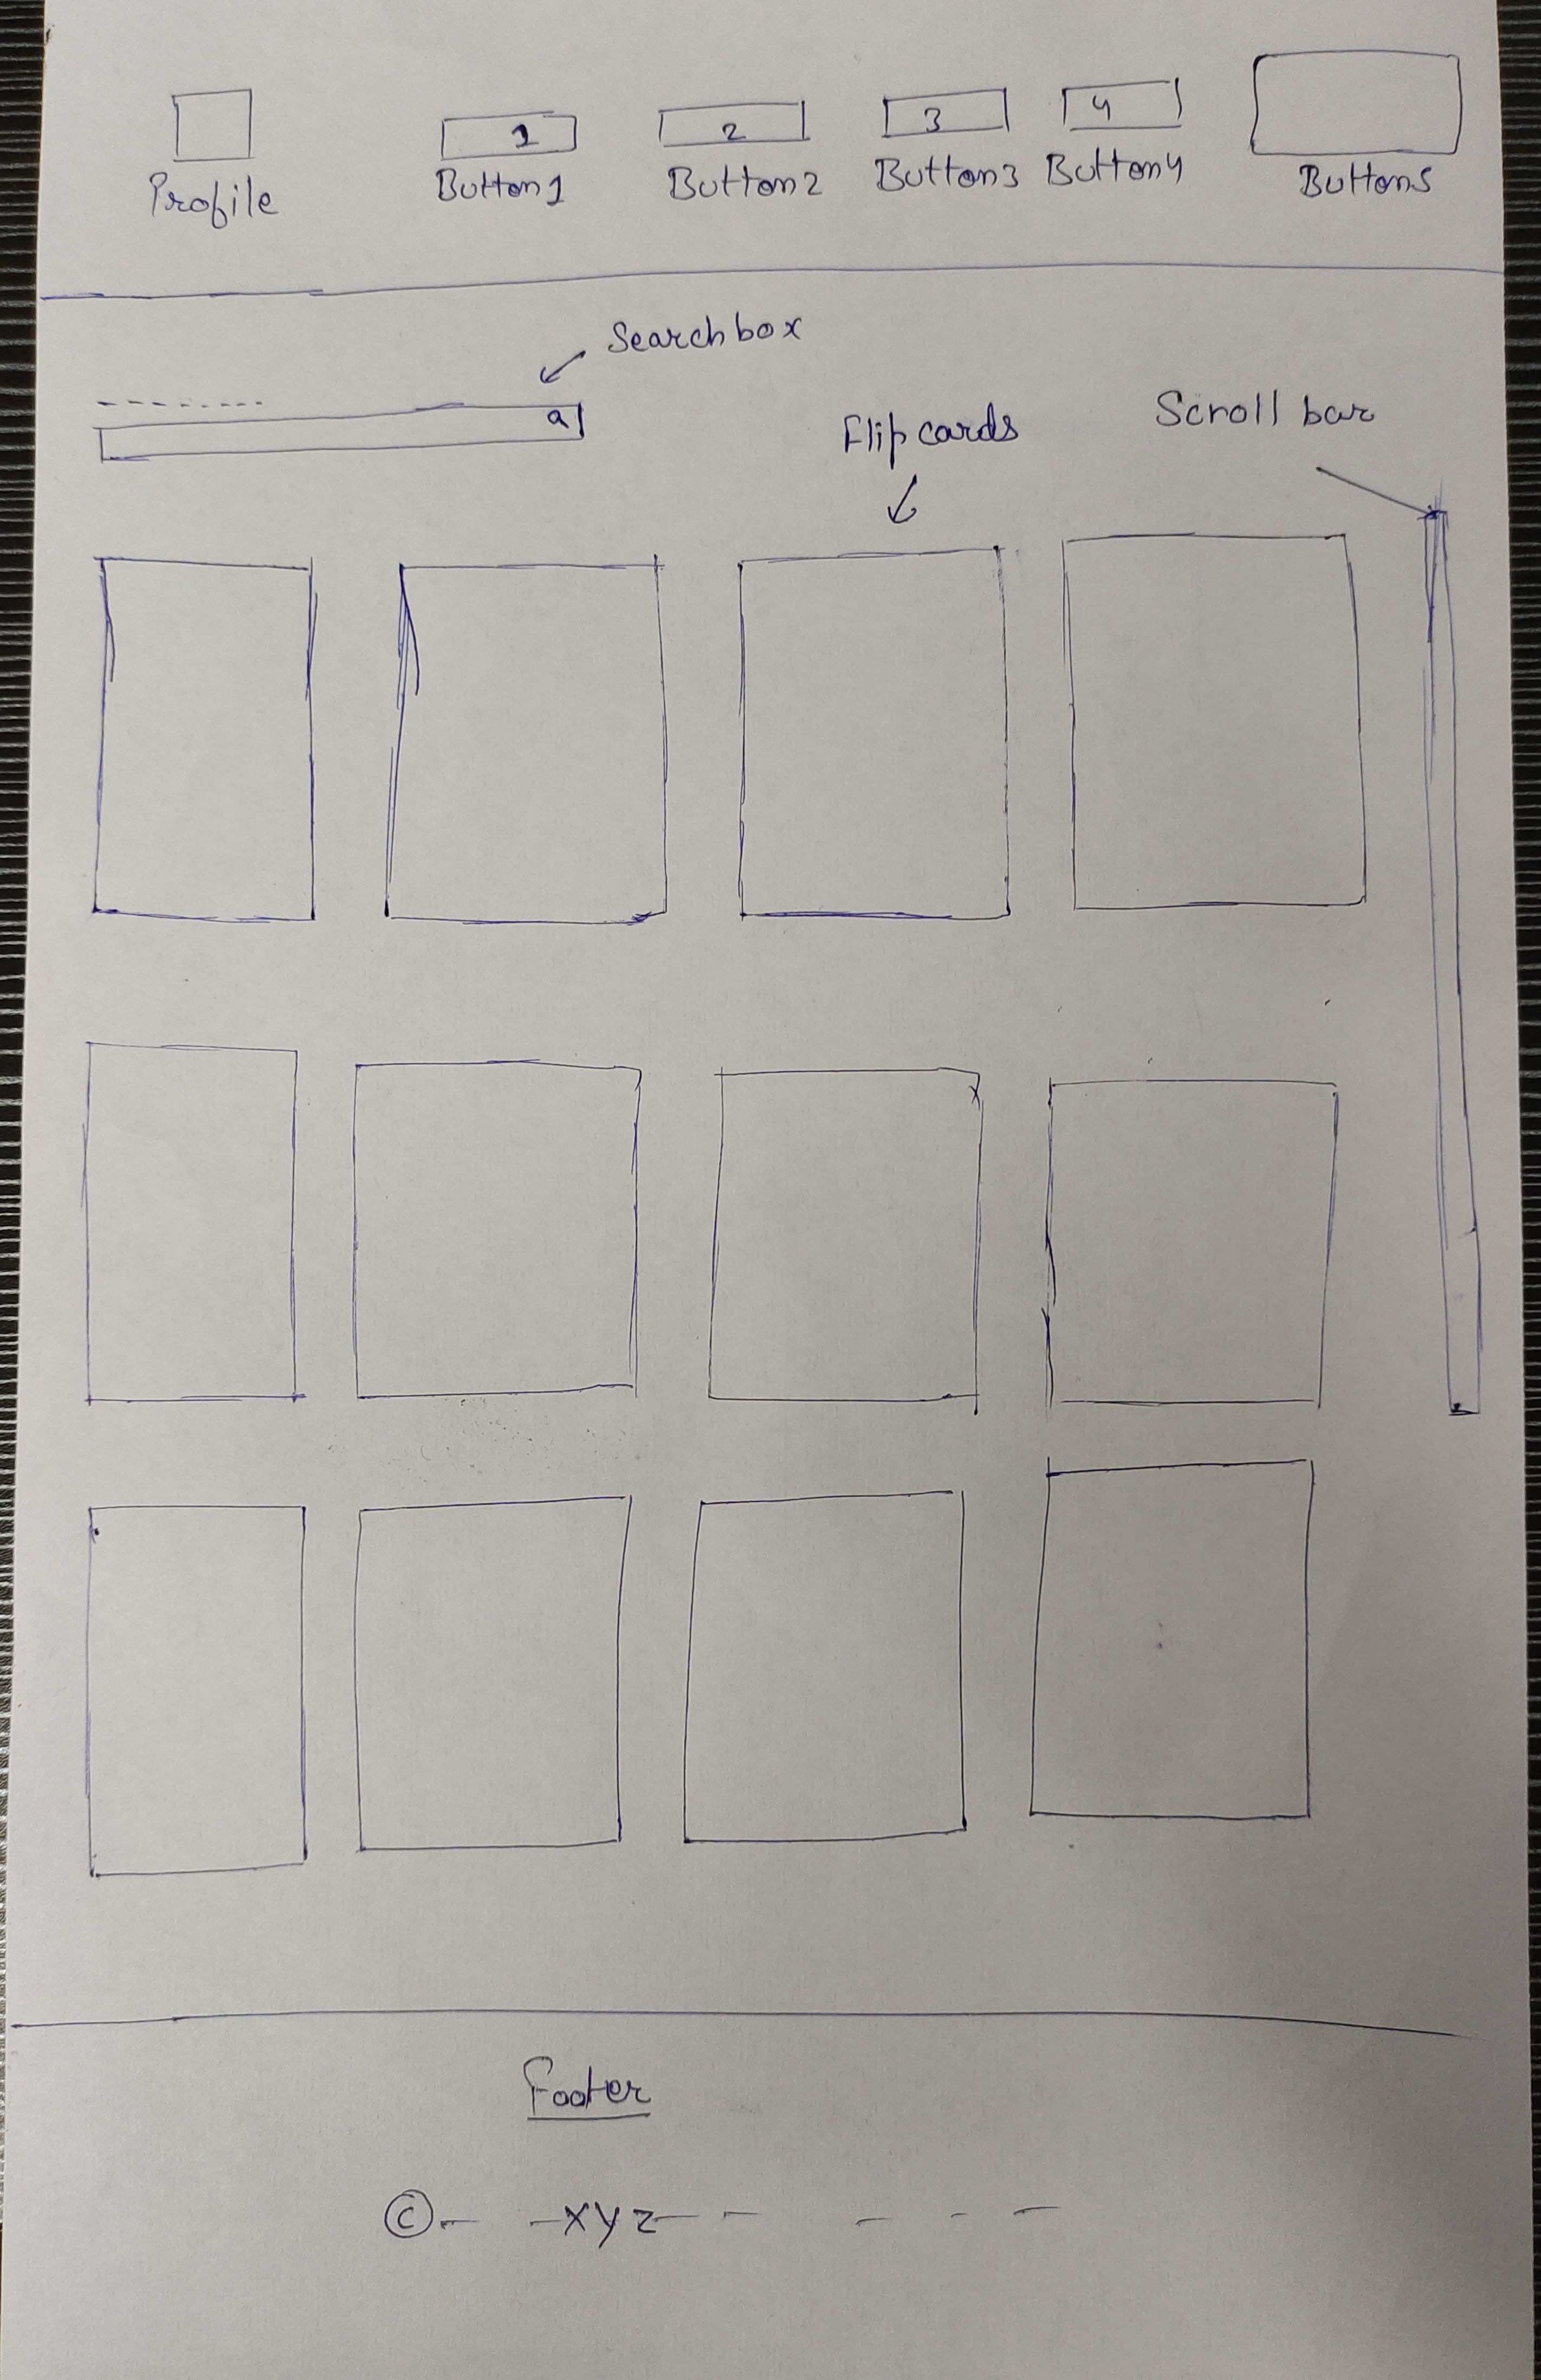 1 2 3 4
Profile Button1 Button2 Button3 Button4 Button5
Searchbox
Flip cards Scroll bar
Footer
© - - xyz - - - - -